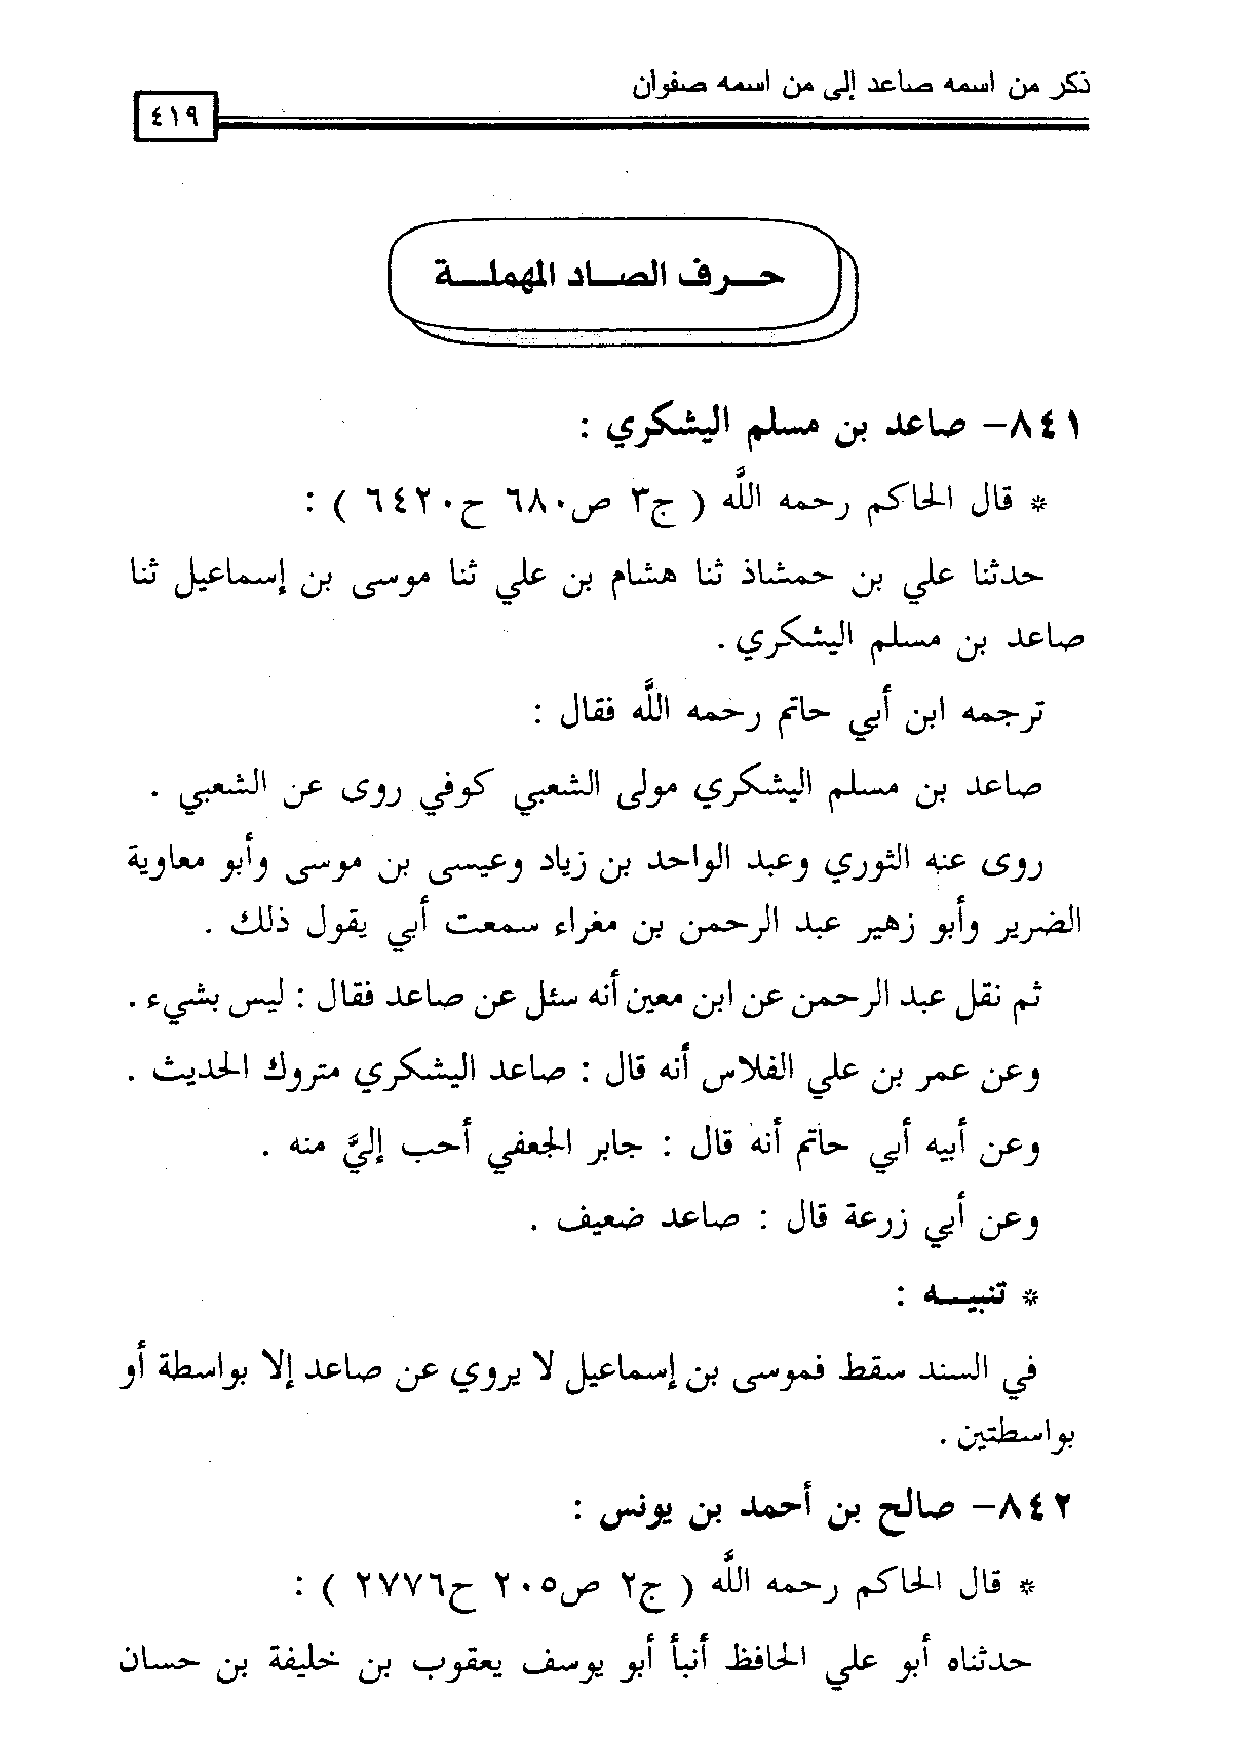 ذكر من اسمه صاعد إلى من اسمه صفوان
٤١٩
حـــرف الصــاد المهملــة
٨٤١- صاعد بن مسلم اليشكري :
* قال الحاكم رحمه اللَّه ( ج٣ ص٦٨٠ ح٦٤٢٠ ) :
حدثنا علي بن حمشاذ ثنا هشام بن علي ثنا موسى بن إسماعيل ثنا
صاعد بن مسلم اليشكري .
ترجمه ابن أبي حاتم رحمه اللَّه فقال :
صاعد بن مسلم اليشكري مولى الشعبي كوفي روى عن الشعبي .
روى عنه الثوري وعبد الواحد بن زياد وعيسى بن موسى وأبو معاوية
الضرير وأبو زهير عبد الرحمن بن مغراء سمعت أبي يقول ذلك .
ثم نقل عبد الرحمن عن ابن معين أنه سئل عن صاعد فقال : ليس بشيء .
وعن عمر بن علي الفلاس أنه قال : صاعد اليشكري متروك الحديث .
وعن أبيه أبي حاتم أنه قال : جابر الجعفي أحب إليَّ منه .
وعن أبي زرعة قال : صاعد ضعيف .
* تنبيـــه :
في السند سقط فموسى بن إسماعيل لا يروي عن صاعد إلا بواسطة أو
بواسطتين .
٨٤٢- صالح بن أحمد بن يونس :
* قال الحاكم رحمه اللَّه ( ج٢ ص٢٠٥ ح٢٧٧٦ ) :
حدثناه أبو علي الحافظ أنبأ أبو يوسف يعقوب بن خليفة بن حسان